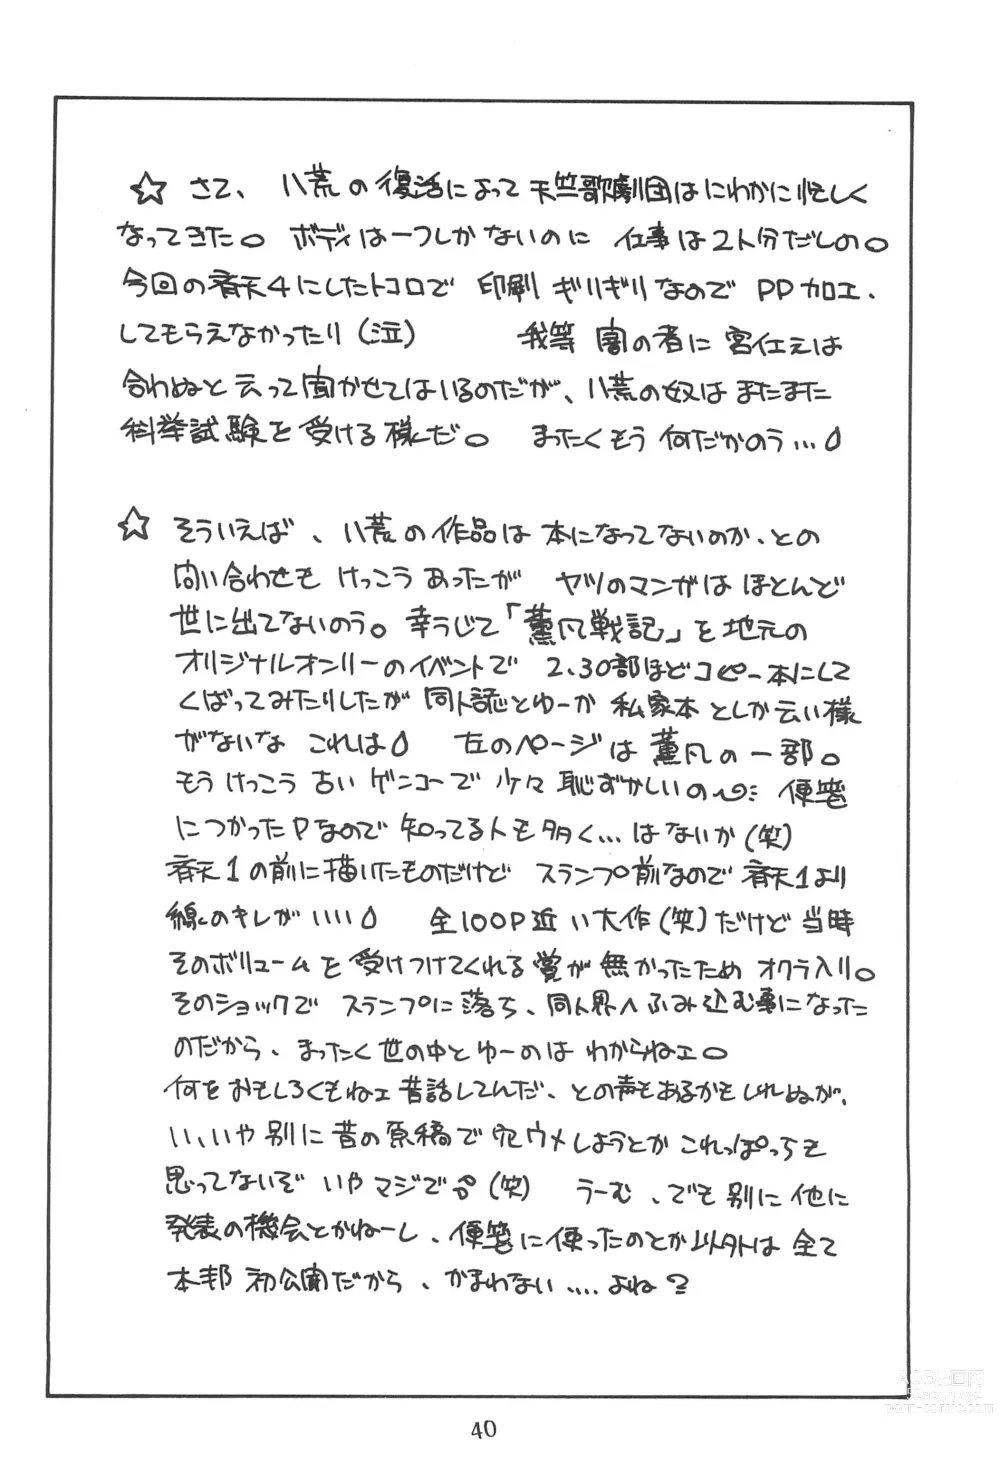 ☆ さて、八荒の復活によって天竺歌劇団はにわかに忙しく
なってきた。 ボディは一つしかないのに 仕事は2人分だしの。
今回の斉天4にしたトコロで 印刷ギリギリなので PP加工、
してもらえなかったり(泣) 我等 闇の者に 宮仕えは
合わぬと云って聞かせてはいるのだが、八荒の奴はまたまた
科挙試験を受ける様だ。 まったくもう 何だかのう…
☆ そういえば、八荒の作品は本になってないのか、との
問い合わせも けっこう あったが ヤツのマンガは ほとんど
世に出てないのう。幸うじて「薫凡戦記」を地元の
オリジナルオンリーのイベントで 2、30部ほど コピー本にして
くばってみたりしたが 同人誌とゆーか 私家本としか云い様
がないな これは 左のページは 薫凡の一部。
もうけっこう古いゲンコーで 少々恥ずかしいの〜 便箋
につかったPなので 知ってる人も多く…はないか(笑)
斉天1の前に描いたものだけど スランプ前なので 斉天1より
線のキレがいい 全100P近い大作(笑)だけど 当時
そのボリュームを受けつけてくれる賞が無かったため オクラ入り。
そのショックで スランプに落ち、同人界へふみ込む事になった
のだから、まったく世の中とゆーのは わからねェ。
何をおもしろくもねェ昔話してんだ、との声もあるかもしれぬが、
い、いや別に昔の原稿で穴ウメしようとか これっぽっちも
思ってないぞ いやマジで(笑) うーむ、でも別に他に
発表の機会とかねーし、便箋に使ったのとか以外は 全て
本邦初公開だから、かまわない….よね?
40